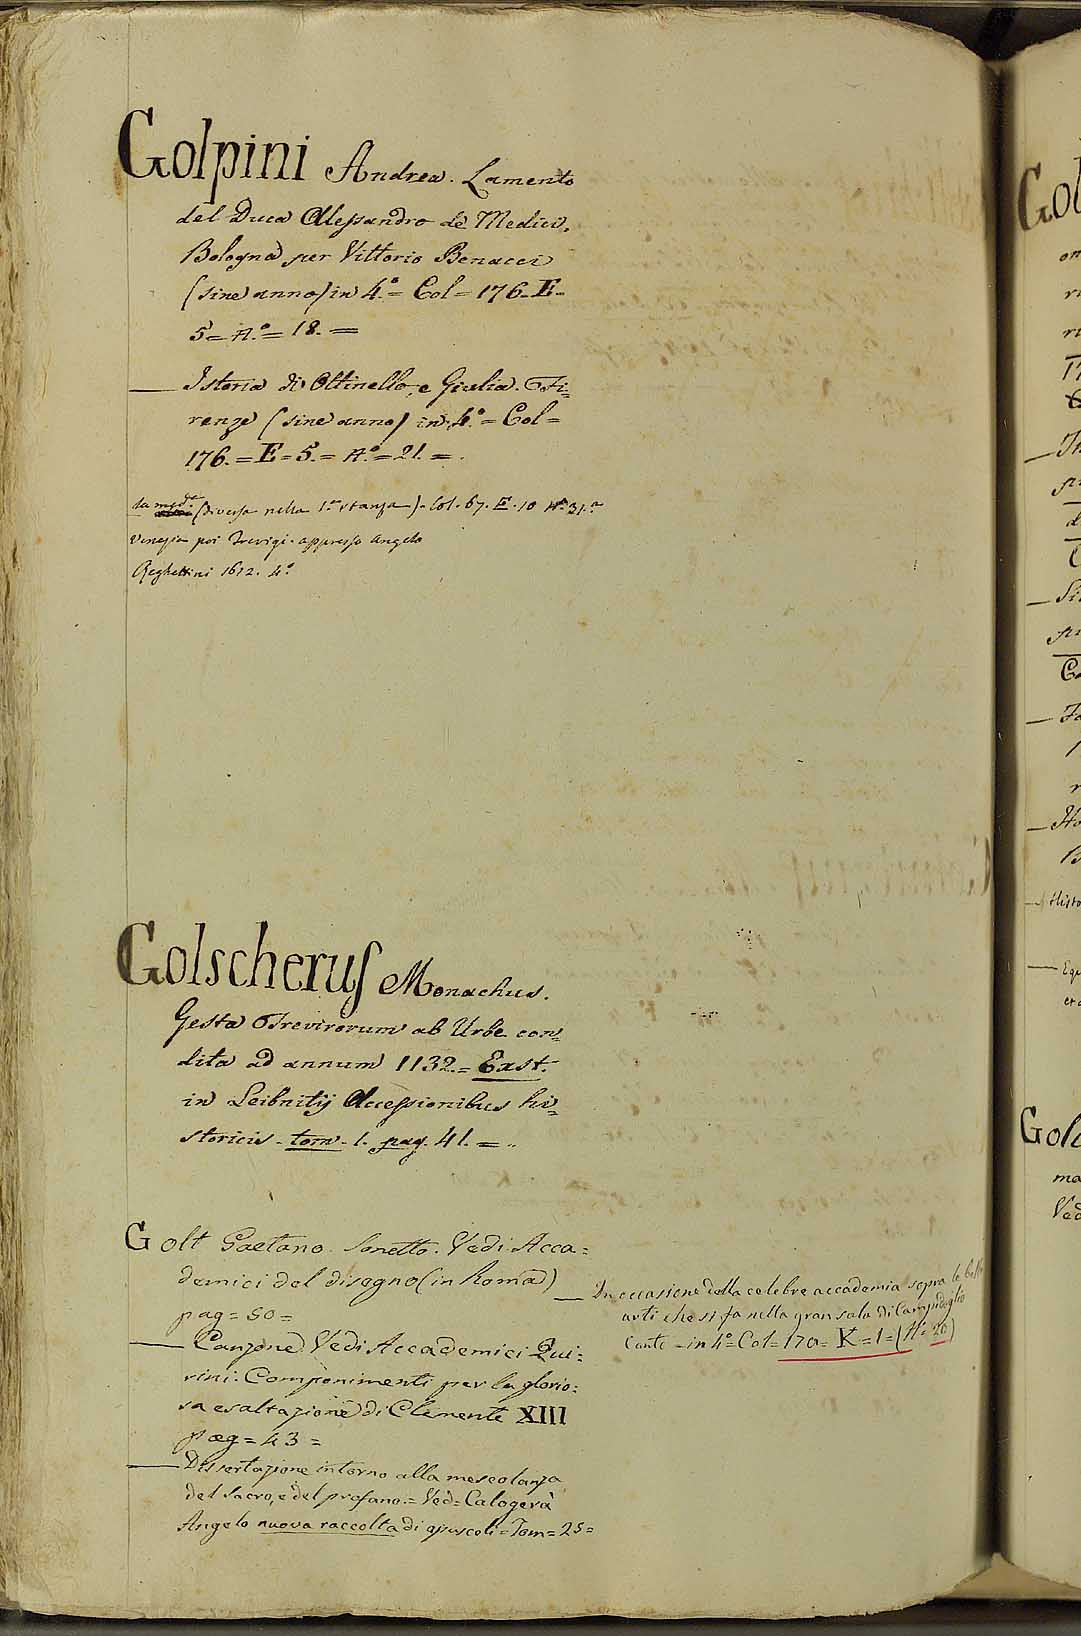 Golpini Andrea. Lamento
del Duca Alessandro de Medici.
Bologna per Vittorio Benacci
(sine anno) in 4.° = Col = 176. E.
5 = N.° = 18. =
— Istoria di Ottinello, e Giulia. Fi=
renze (sine anno) in 4.° = Col =
176. = E = 5. = N.° = 21. = .
la med.a (diversa nella 1.a stanza). Col. 67. E. 10 N.° 31.a
Venezia poi Trevigi. appresso Angelo
Reghettini 1612. 4.°
Golscherus Monachus.
Gesta Trevirorum ab Urbe con=
dita ad annum 1132. = Exst.
in Leibnitij Accessionibus hi=
storicis - tom - 1. pag. 41. = ..
Golt Gaetano. Sonetto. Vedi Acca=
demici del disegno (in Roma)
pag = 50 =
— Canzone. Vedi Accademici Qui=
rini: Componimenti per la glorio=
sa esaltazione di Clemente XIII
pag = 43 =
— Dissertazione intorno alla mescolanza
del sacro, e del profano. = Ved = Calogerà
Angelo nuova raccolta di opuscoli = Tom = 25 =
— In occasione della celebre accademia sopra le belle
arti che si fa nella gran sala di Campidoglio
Canto - in 4° = Col = 170 = K = 1 = (N° = 20)
Gol
Gol
ma
Ved